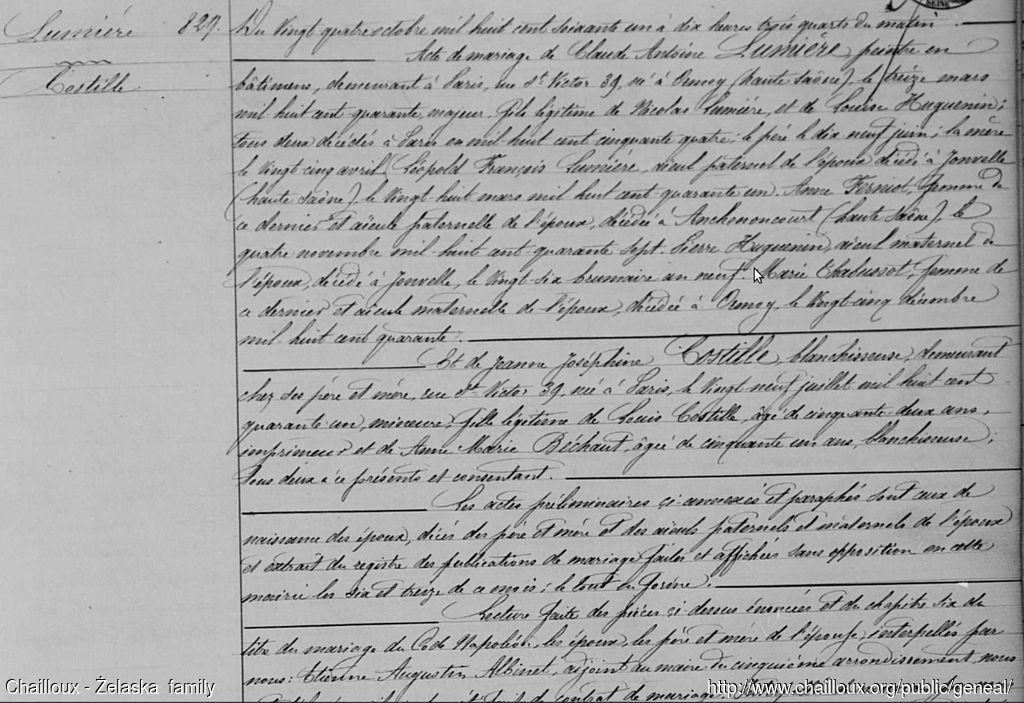 SEINE
Lumière 827.
Costille
Du Vingt quatre octobre mil huit cent soixante un à dix heures trois quarts du matin
Acte de mariage de Claude Antoine Lumière, peintre en
bâtimens, demeurant à Paris, rue St Victor 39, né à Ormoy (haute Saône), le treize mars
mil huit cent quarante, majeur. fils légitime de Nicolas Lumière, et de Louise Huguenin;
tous deux décédés à Paris en mil huit cent cinquante quatre; le père le dix neuf juin; la mère
le Vingt cinq avril. (Léopold François Lumière, aïeul paternel de l'époux décédé à Jonvelle
(haute Saône), le Vingt huit mars mil huit cent quarante un. Anne Ferniot, femme de
ce dernier et aïeule paternelle de l'époux, décédée à Anchenoncourt (haute Saône), le
quatre novembre mil huit cent quarante sept. Pierre Huguenin, aïeul maternel de
l'époux, décédé à Jonvelle, le Vingt six brumaire an neuf. Marie Chabussot, femme de
ce dernier et aïeule maternelle de l'époux, décédée à Ormoy, le Vingt-cinq décembre
mil huit cent quarante.
Et de Jeanne Joséphine Costille, blanchisseuse, demeurant
chez ses père et mère, rue St Victor 39, née à Paris, le Vingt neuf juillet mil huit cent
quarante un, mineure. fille légitime de Louis Costille, âgé de cinquante-deux ans,
imprimeur et de Anne Marie Béchaut, âgée de cinquante un ans, blanchisseuse;
tous deux à ce présents et consentant.
Les actes préliminaires ci annexés et paraphés sont ceux de
naissance des époux, décès des père et mère et des aïeuls paternels et maternels de l'époux
et extrait du registre des publications de mariage faites et affichées sans opposition en cette
mairie les six et treize de ce mois; le tout en forme.
Lecture faite des pièces ci dessus énoncées et du chapitre six du
titre du mariage du Code Napoléon, les époux, les père et mère de l'épouse, interpellés par
nous: Etienne Augustin Albinet, adjoint au maire du cinquième arrondissement, nous
de contrat de mariage.
Chailloux - Żelaska family
http://www.chailloux.org/public/geneal/